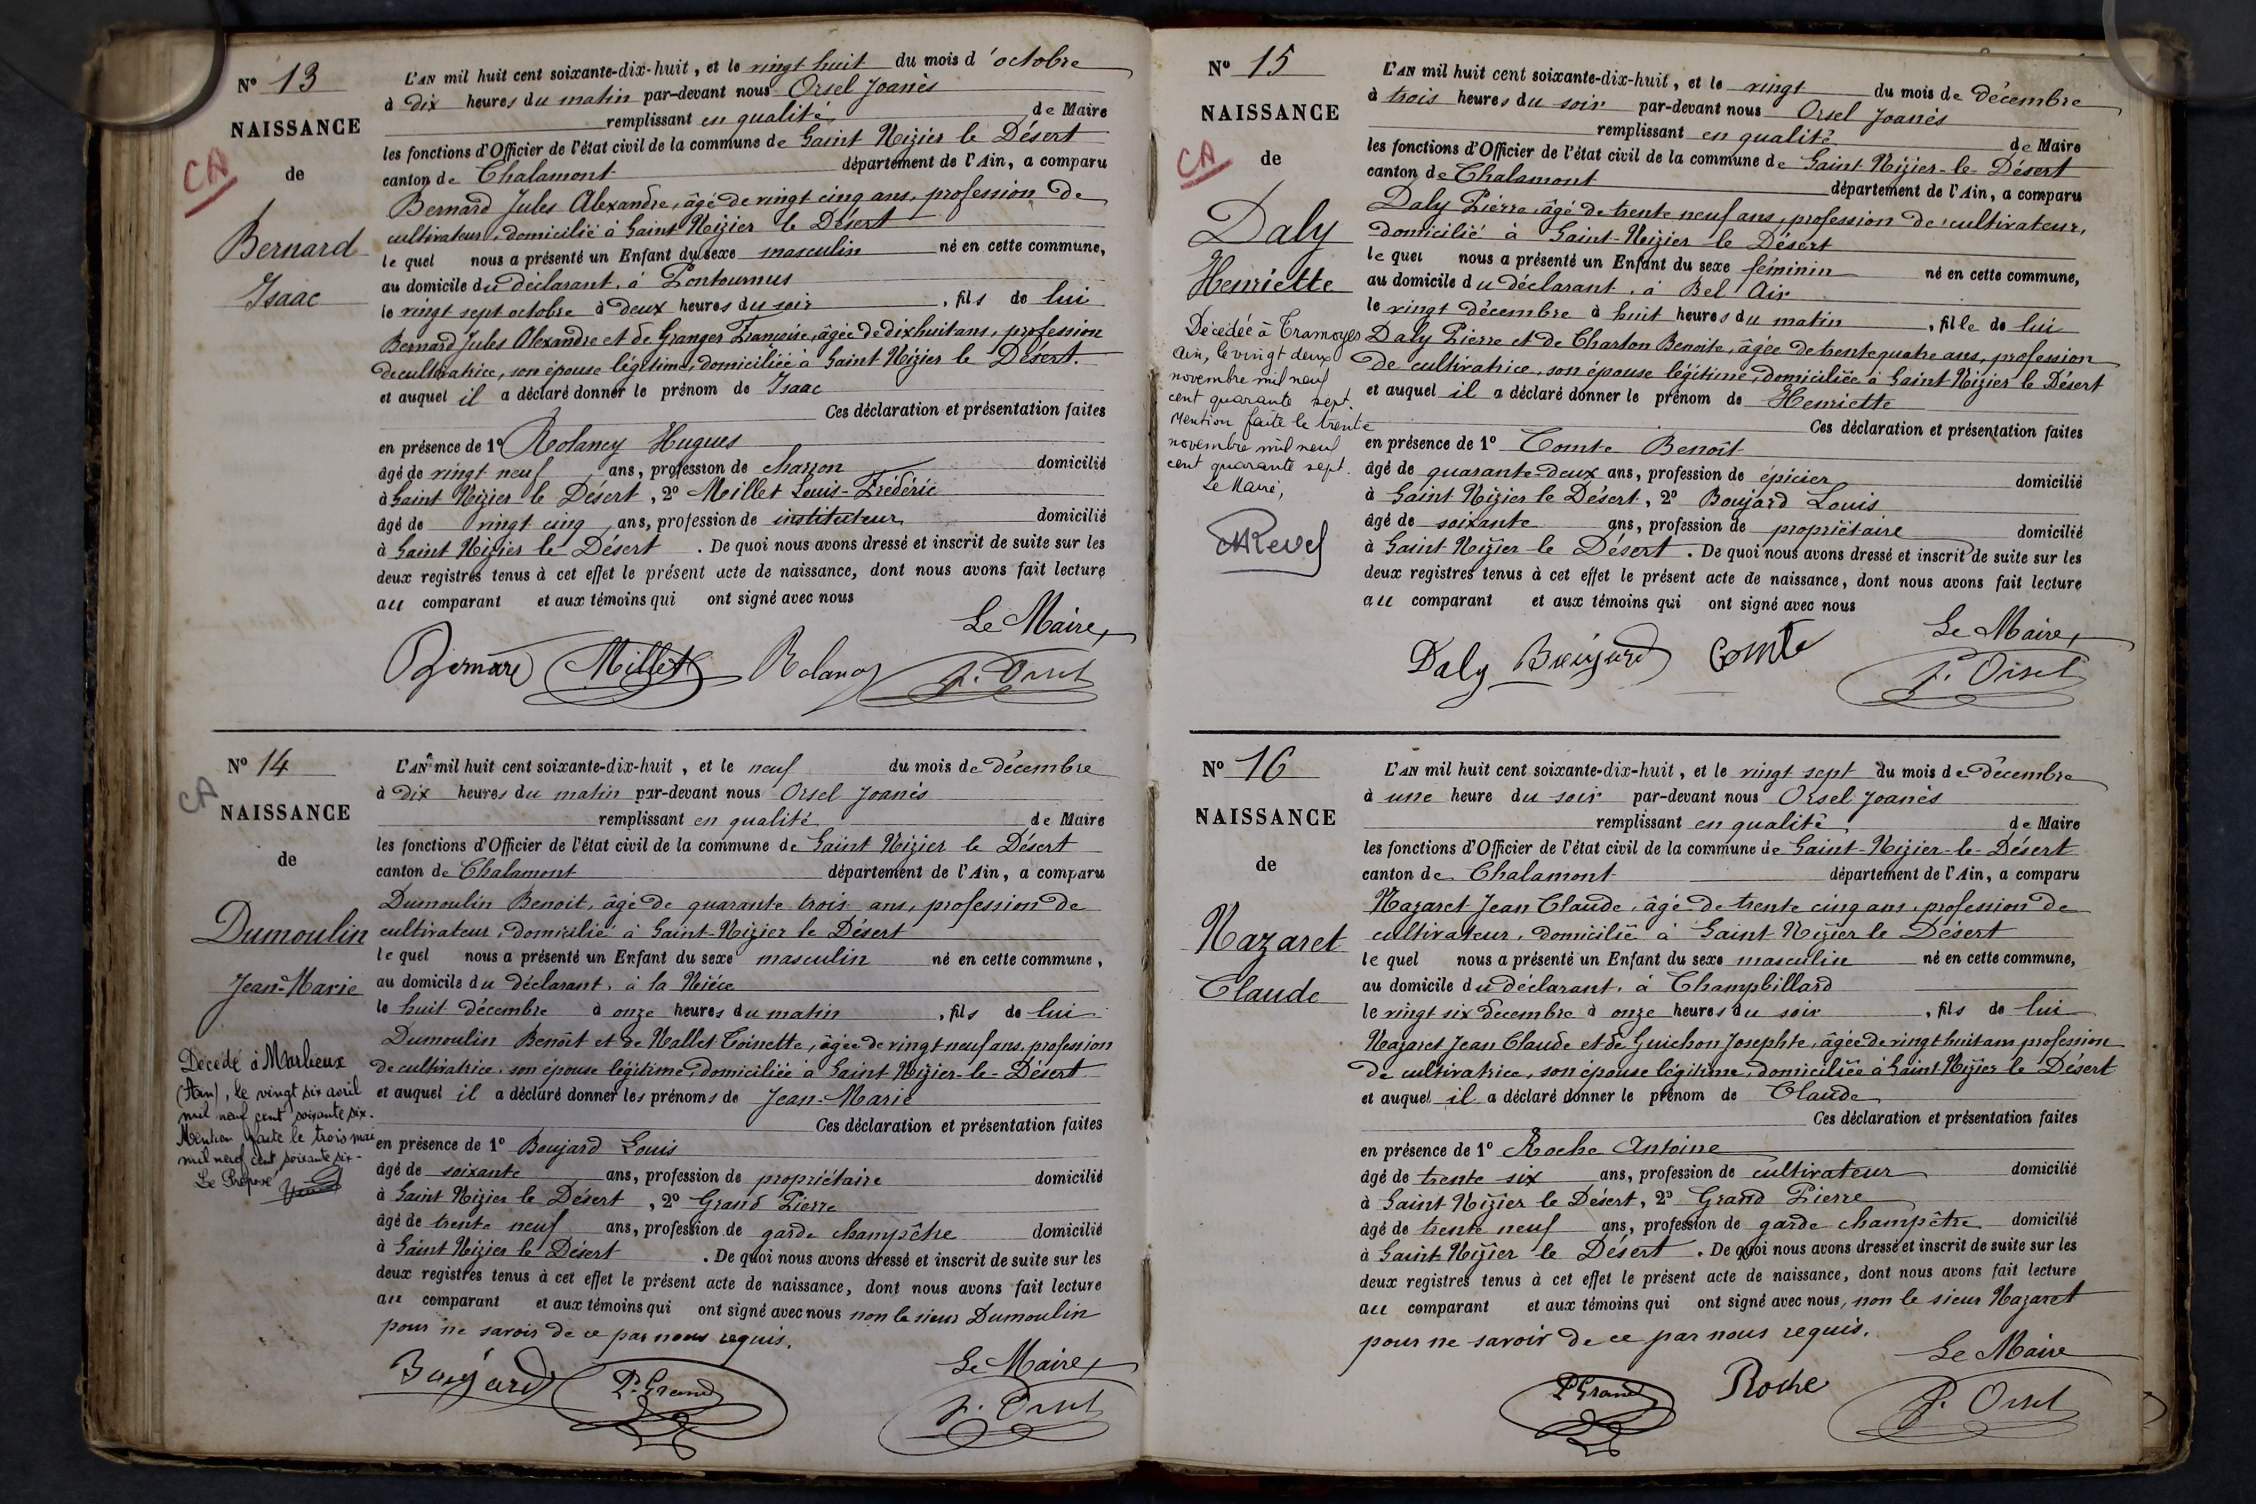 N° 13
NAISSANCE
CA
de
Bernard
Isaac
L'AN mil huit cent soixante-dix-huit, et le vingt huit du mois d'octobre
à dix heures du matin par-devant nous Orsel Joanès
remplissant en qualité de Maire
les fonctions d'Officier de l'état civil de la commune de Saint Nizier le Désert
canton de Chalamont département de l'Ain, a comparu
Bernard Jules Alexandre, âgé de vingt cinq ans, profession de
cultivateur, domicilié à Saint Nizier le Désert
le quel nous a présenté un Enfant du sexe masculin né en cette commune,
au domicile du déclarant, à Pontournus
le vingt sept octobre à deux heures du soir, fils de lui
Bernard Jules Alexandre et de Granger Françoise, âgée de dix huit ans, profession
de cultivatrice, son épouse légitime, domiciliée à Saint Nizier le Désert.
et auquel il a déclaré donner le prénom de Isaac
Ces déclaration et présentation faites
en présence de 1° Rolancy Hugues
âgé de vingt neuf ans, profession de charron domicilié
à Saint Nizier le Désert, 2° Meillet Louis-Frédéric
âgé de vingt cinq ans, profession de instituteur domicilié
à Saint Nizier le Désert. De quoi nous avons dressé et inscrit de suite sur les
deux registres tenus à cet effet le présent acte de naissance, dont nous avons fait lecture
au comparant et aux témoins qui ont signé avec nous
Le Maire,
Bernard Millet Rolancy J. Orsel
N° 14
CA
NAISSANCE
de
Dumoulin
Jean-Marie
Décédé à Marlieux
(Ain), le vingt six avril
mil neuf cent soixante six.
Mention faite le trois mai
mil neuf cent soixante six.
Le Préposé
L'AN mil huit cent soixante-dix-huit, et le neuf du mois de décembre
à dix heures du matin par-devant nous Orsel Joanès
remplissant en qualité de Maire
les fonctions d'Officier de l'état civil de la commune de Saint Nizier le Désert
canton de Chalamont département de l'Ain, a comparu
Dumoulin Benoit, âgé de quarante trois ans, profession de
cultivateur, domicilié à Saint-Nizier le Désert
le quel nous a présenté un Enfant du sexe masculin né en cette commune,
au domicile du déclarant, à la Nièce
le huit décembre à onze heures du matin, fils de lui
Dumoulin Benoît et de Nallet Toinette, âgée de vingt neuf ans, profession
de cultivatrice, son épouse légitime, domiciliée à Saint Nizier-le-Désert
et auquel il a déclaré donner les prénoms de Jean-Marie
Ces déclaration et présentation faites
en présence de 1° Boujard Louis
âgé de soixante ans, profession de propriétaire domicilié
à Saint Nizier le Désert, 2° Grand Pierre
âgé de trente neuf ans, profession de garde champêtre domicilié
à Saint Nizier le Désert. De quoi nous avons dressé et inscrit de suite sur les
deux registres tenus à cet effet le présent acte de naissance, dont nous avons fait lecture
au comparant et aux témoins qui ont signé avec nous non le sieur Dumoulin
pour ne savoir de ce par nous requis.
Le Maire,
Boujard P. Grand J. Orsel
N° 15
NAISSANCE
CA
de
Daly
Henriette
Décédée à Tramoyes
Ain, le vingt deux
novembre mil neuf
cent quarante sept.
Mention faite le trente
novembre mil neuf
cent quarante sept.
Le Maire,
L'AN mil huit cent soixante-dix-huit, et le vingt du mois de décembre
à trois heures du soir par-devant nous Orsel Joanès
remplissant en qualité de Maire
les fonctions d'Officier de l'état civil de la commune de Saint-Nizier-le-Désert
canton de Chalamont département de l'Ain, a comparu
Daly Pierre, âgé de trente neuf ans, profession de cultivateur,
domicilié à Saint-Nizier le Désert
le quel nous a présenté un Enfant du sexe féminin né en cette commune,
au domicile du déclarant, à Bel Air
le vingt décembre à huit heures du matin, fille de lui
Daly Pierre et de Charton Benoite, âgée de trente quatre ans, profession
de cultivatrice, son épouse légitime, domiciliée à Saint-Nizier le Désert
et auquel il a déclaré donner le prénom de Henriette
Ces déclaration et présentation faites
en présence de 1° Comte Benoît
âgé de quarante-deux ans, profession de épicier domicilié
à Saint Nizier le Désert, 2° Boujard Louis
âgé de soixante ans, profession de propriétaire domicilié
à Saint-Nizier le Désert. De quoi nous avons dressé et inscrit de suite sur les
deux registres tenus à cet effet le présent acte de naissance, dont nous avons fait lecture
au comparant et aux témoins qui ont signé avec nous
Le Maire,
Daly Boujard Comte J. Orsel
N° 16
NAISSANCE
de
Nazaret
Claude
L'AN mil huit cent soixante-dix-huit, et le vingt sept du mois de décembre
à une heure du soir par-devant nous Orsel Joanès
remplissant en qualité de Maire
les fonctions d'Officier de l'état civil de la commune de Saint-Nizier-le-Désert
canton de Chalamont département de l'Ain, a comparu
Nazaret Jean Claude, âgé de trente cinq ans, profession de
cultivateur, domicilié à Saint-Nizier le Désert
le quel nous a présenté un Enfant du sexe masculin né en cette commune,
au domicile du déclarant, à Champbillard
le vingt six décembre à onze heures du soir, fils de lui
Nazaret Jean Claude et de Guichon Josephte, âgée de vingt huit ans profession
de cultivatrice, son épouse légitime, domiciliée à Saint Nizier le Désert
et auquel il a déclaré donner le prénom de Claude
Ces déclaration et présentation faites
en présence de 1° Roche Antoine
âgé de trente six ans, profession de cultivateur domicilié
à Saint Nizier le Désert, 2° Grand Pierre
âgé de trente neuf ans, profession de garde champêtre domicilié
à Saint-Nizier le Désert. De quoi nous avons dressé et inscrit de suite sur les
deux registres tenus à cet effet le présent acte de naissance, dont nous avons fait lecture
au comparant et aux témoins qui ont signé avec nous, non le sieur Nazaret
pour ne savoir de ce par nous requis.
Le Maire
P. Grand Roche J. Orsel